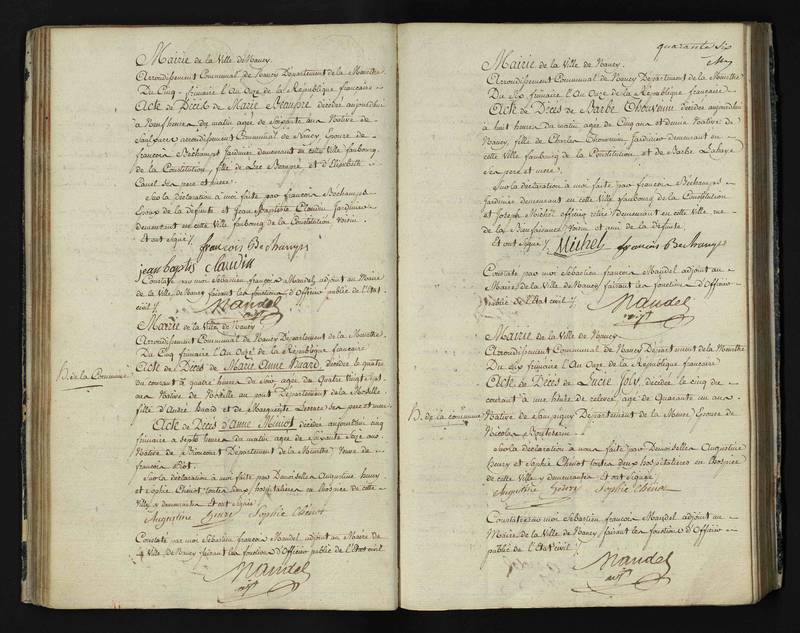 Mairie de la Ville de Nancy
Arrondissement Communal de Nancy Departement de la Meurthe
Du Cinq frimaire l'An Onze de la République française
Acte de Décès de Marie décédée aujourdhui
à heures du matin agée de Soixante ans Native de
arrondissement Communal de Nancy, Epouse de
françois Bechamps Jardinier demeurant en cette Ville faubourg
de la Constitution, fille de et d'Elisabeth
ses pere et mere
Sur la déclaration à moi faite par françois Bechamps
Epoux de la défunte et Jean Baptiste Claudin Jardinier
demeurant en cette Ville faubourg de la Constitution voisin
Et ont signé
françois Bechamps
jean baptis Claudin
Constaté par moi Sébastien françois Mandel, adjoint au Maire
de la Ville de Nancy faisant les fonctions d'Officier public de l'Etat
civil
Mandel
adjt
Mairie de la Ville de Nancy
Arrondissement Communal de Nancy Département de la Meurthe
Du Cinq frimaire l'An Onze de la République française
H. de la Commune
Acte de Décès de Marie Anne décédée le quatre
du courant à quatre heures du Soir agée de Quatre Vingt
ans Native de au pont Département de la Moselle
fille d'André et de Marguerite ses pere et mere
Acte de Décès d'Anne décédée aujourdhui cinq
frimaire à sept heures du matin agée de Soixante Seize ans
Native de Département de la Meurthe Veuve de
françois
Sur la déclaration à moi faite par Demoiselles Augustine henry
et Sophie Chénot toutes deux hospitalières en l'hospice de cette
Ville y demeurantes et ont signé
Augustine henry Sophie Chénot
Constaté par moi Sébastien françois Mandel adjoint au Maire de
la Ville de Nancy faisant les fonctions d'Officier public de l'Etat civil
Mandel
adjt
quarante six
Mairie de la Ville de Nancy
Arrondissement Communal de Nancy Département de la Meurthe
Du Six frimaire l'An Onze de la République française
Acte de Décès de Barbe Thouvenin décédée aujourdhui
à huit heures du matin agée de Cinq ans et demi Native de
Nancy, fille de Charles Thouvenin Jardinier demeurant en
cette Ville faubourg de la Constitution, et de Barbe
Ses pere et mere
Sur la déclaration à moi faite par françois Bechamps
Jardinier demeurant en cette Ville faubourg de la Constitution
et Joseph Michel officier demeurant en cette Ville rue
de la Bienfaisance, Voisin et ami de la défunte
Et ont signé Michel françois Bechamps
Constaté par moi Sébastien françois Mandel adjoint au
Maire de la Ville de Nancy faisant les fonctions d'Officier
public de l'Etat civil
Mandel
adjt
Mairie de la Ville de Nancy
Arrondissement Communal de Nancy Département de la Meurthe
Du Six frimaire l'An Onze de la République française
Acte de Décès de Lucie Joly, décédée le cinq du
courant à une heure de relevée agée de Quarante un ans
H. de la commune
Native de Sampigny Département de la Meuse Epouse de
Nicolas
Sur la déclaration à nous faite par Demoiselles Augustine
henry et Sophie Chénot toutes deux hospitalières en l'hospice
de cette Ville y demeurantes et ont signé
Augustine henry Sophie Chénot
Constaté par moi Sébastien françois Mandel adjoint au
Maire de la Ville de Nancy faisant les fonctions d'Officier
public de l'Etat civil
Mandel
adjt